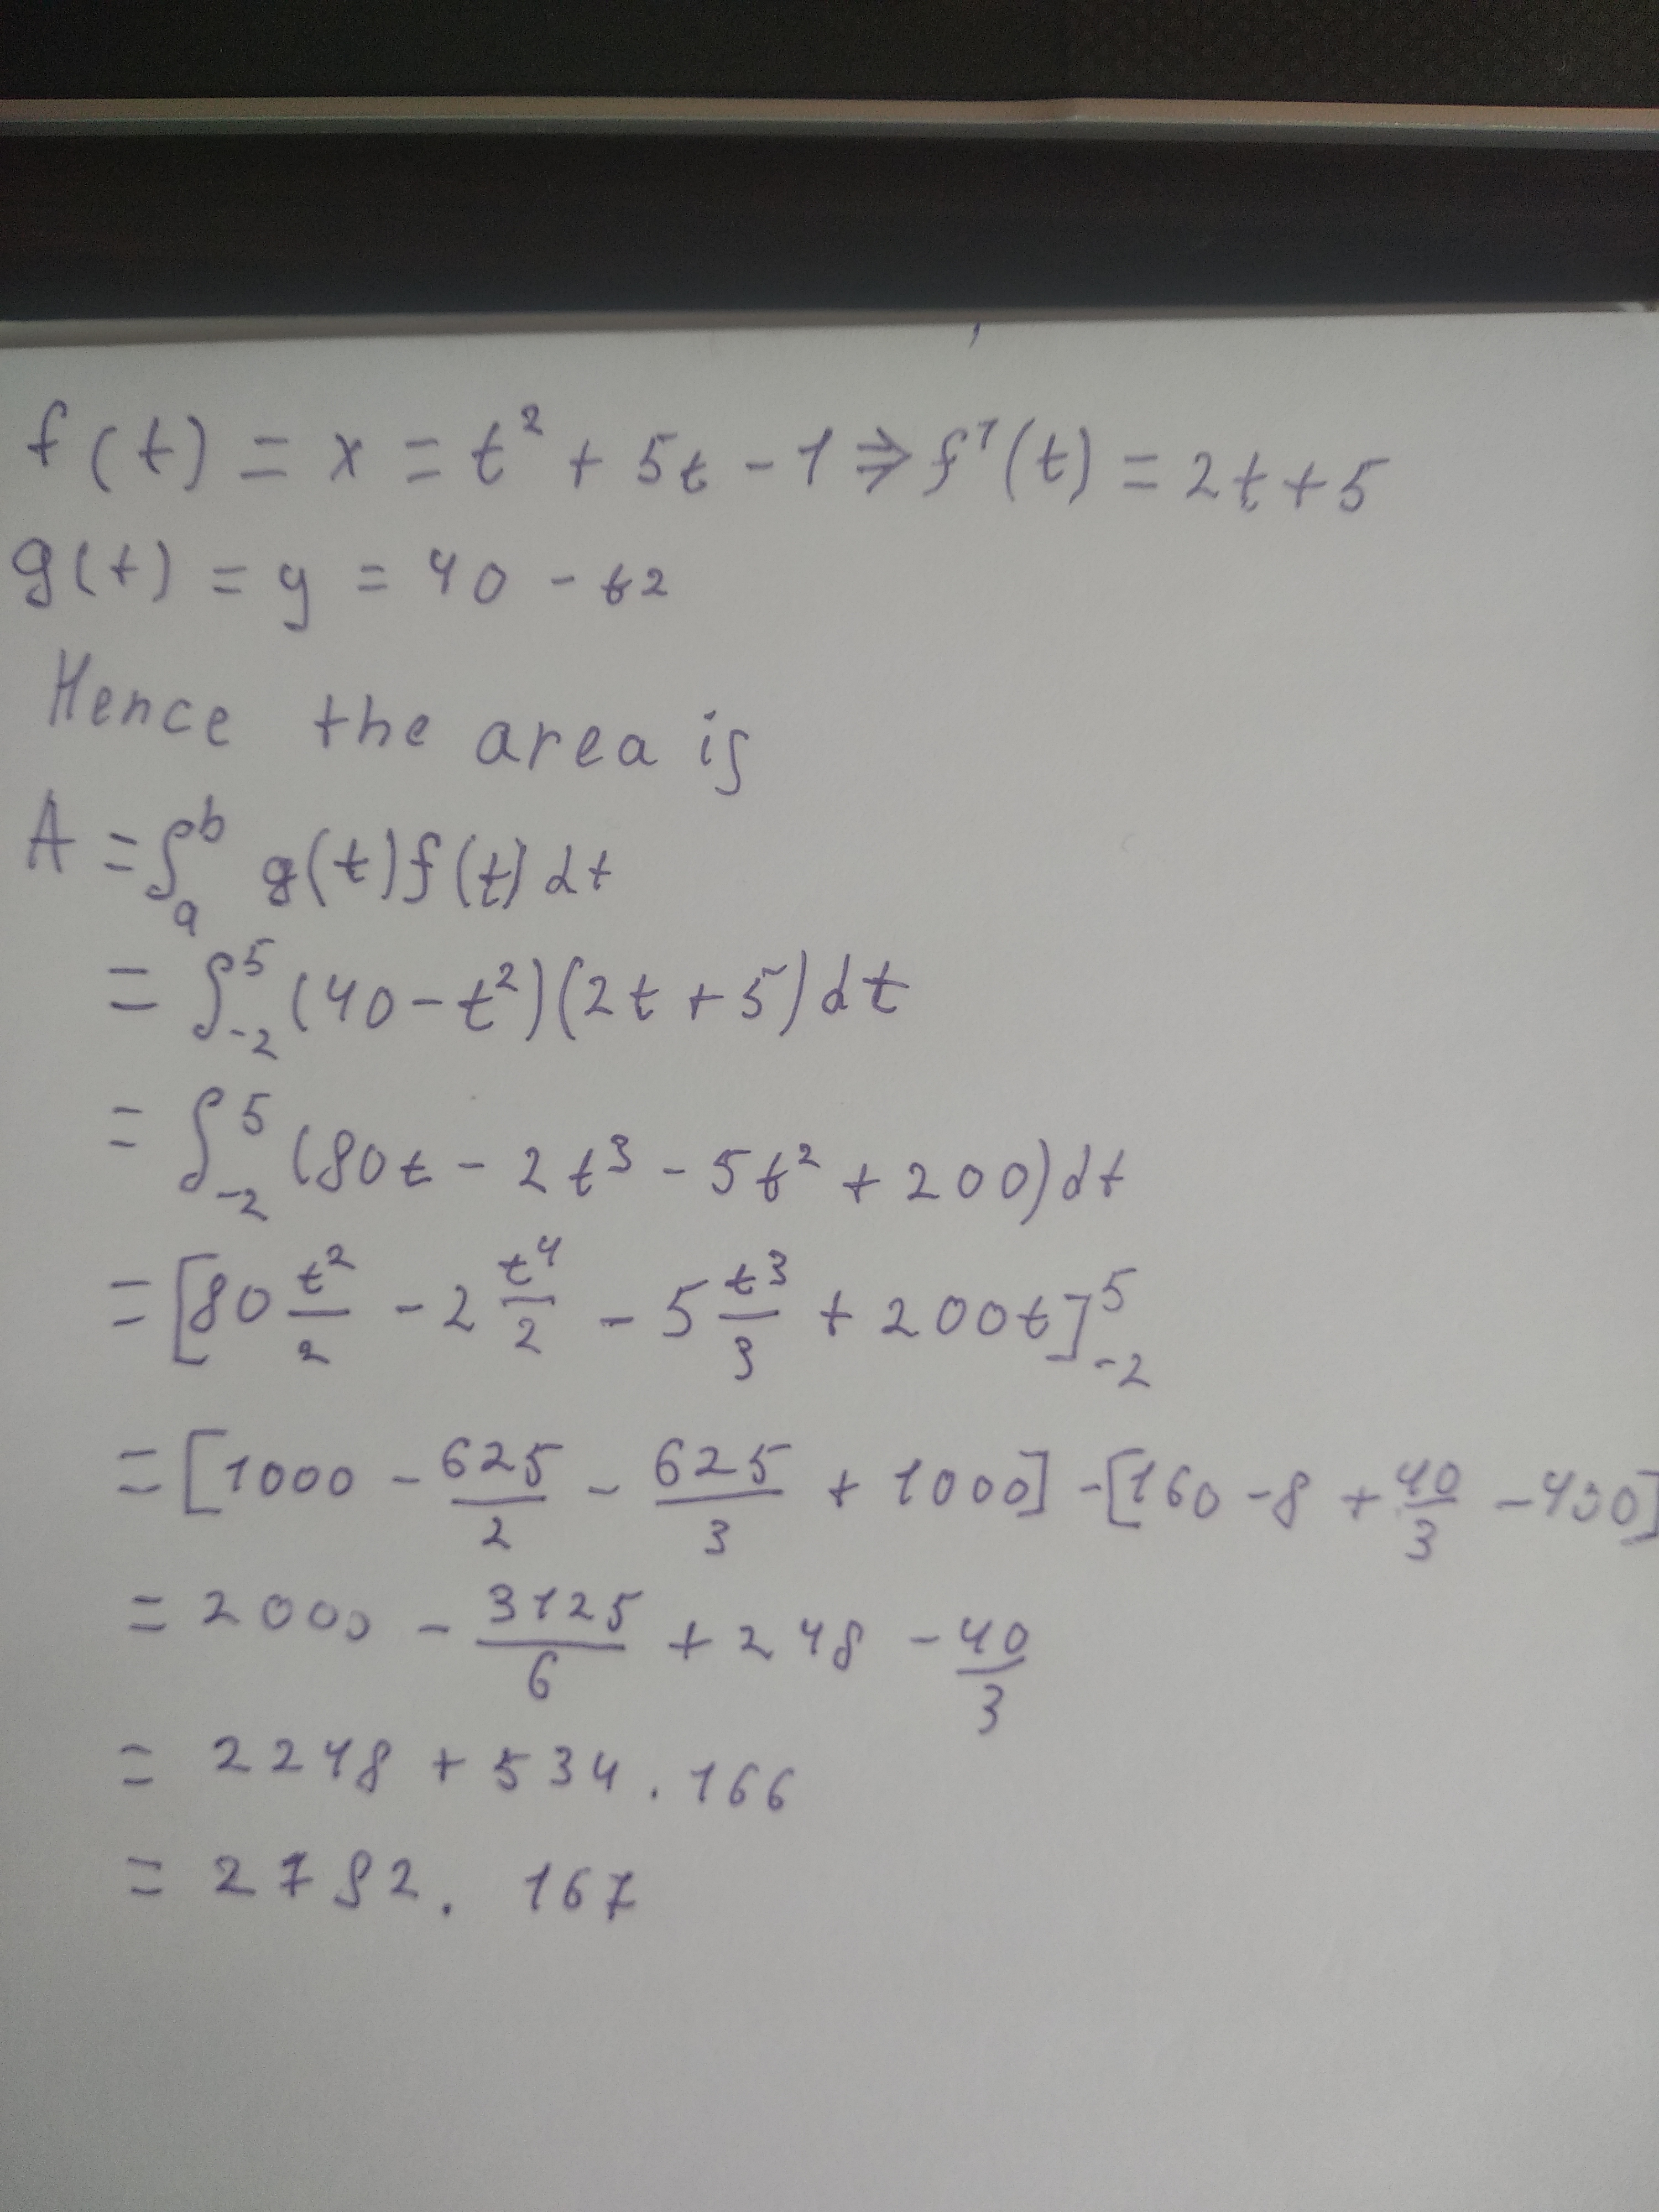 f(t) = x = t² + 5t - 1 ⇒ f'(t) = 2t + 5
g(t) = y = 40 - t2
Hence the area is
A = ∫ₐᵇ g(t)f(t)dt
= ∫₋₂⁵ (40 - t²)(2t + 5)dt
= ∫₋₂⁵ (80t - 2t³ - 5t² + 200)dt
= [80 t²/2 - 2 t⁴/2 - 5 t³/3 + 200t]₋₂⁵
= [1000 - 625/2 - 625/3 + 1000] - [160 - 8 + 40/3 - 400]
= 2000 - 3125/6 + 248 - 40/3
= 2248 + 534.166
= 2782.167